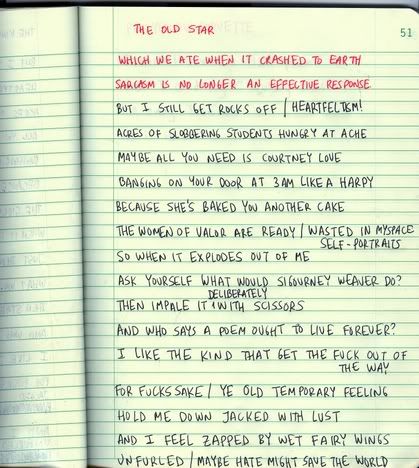 THE OLD STAR
51
WHICH WE ATE WHEN IT CRASHED TO EARTH
SARCASM IS NO LONGER AN EFFECTIVE RESPONSE
BUT I STILL GET ROCKS OFF / HEARTFELTISM!
ACRES OF SLOBBERING STUDENTS HUNGRY AT ACHE
MAYBE ALL YOU NEED IS COURTNEY LOVE
BANGING ON YOUR DOOR AT 3AM LIKE A HARPY
BECAUSE SHE'S BAKED YOU ANOTHER CAKE
THE WOMEN OF VALOR ARE READY / WASTED IN MYSPACE
SELF-PORTRAITS
SO WHEN IT EXPLODES OUT OF ME
ASK YOURSELF WHAT WOULD SIGOURNEY WEAVER DO?
DELIBERATELY
THEN IMPALE IT WITH SCISSORS
AND WHO SAYS A POEM OUGHT TO LIVE FOREVER?
I LIKE THE KIND THAT GET THE FUCK OUT OF
THE WAY
FOR FUCKS SAKE / YE OLD TEMPORARY FEELING
HOLD ME DOWN JACKED WITH LUST
AND I FEEL ZAPPED BY WET FAIRY WINGS
UNFURLED / MAYBE HATE MIGHT SAVE THE WORLD